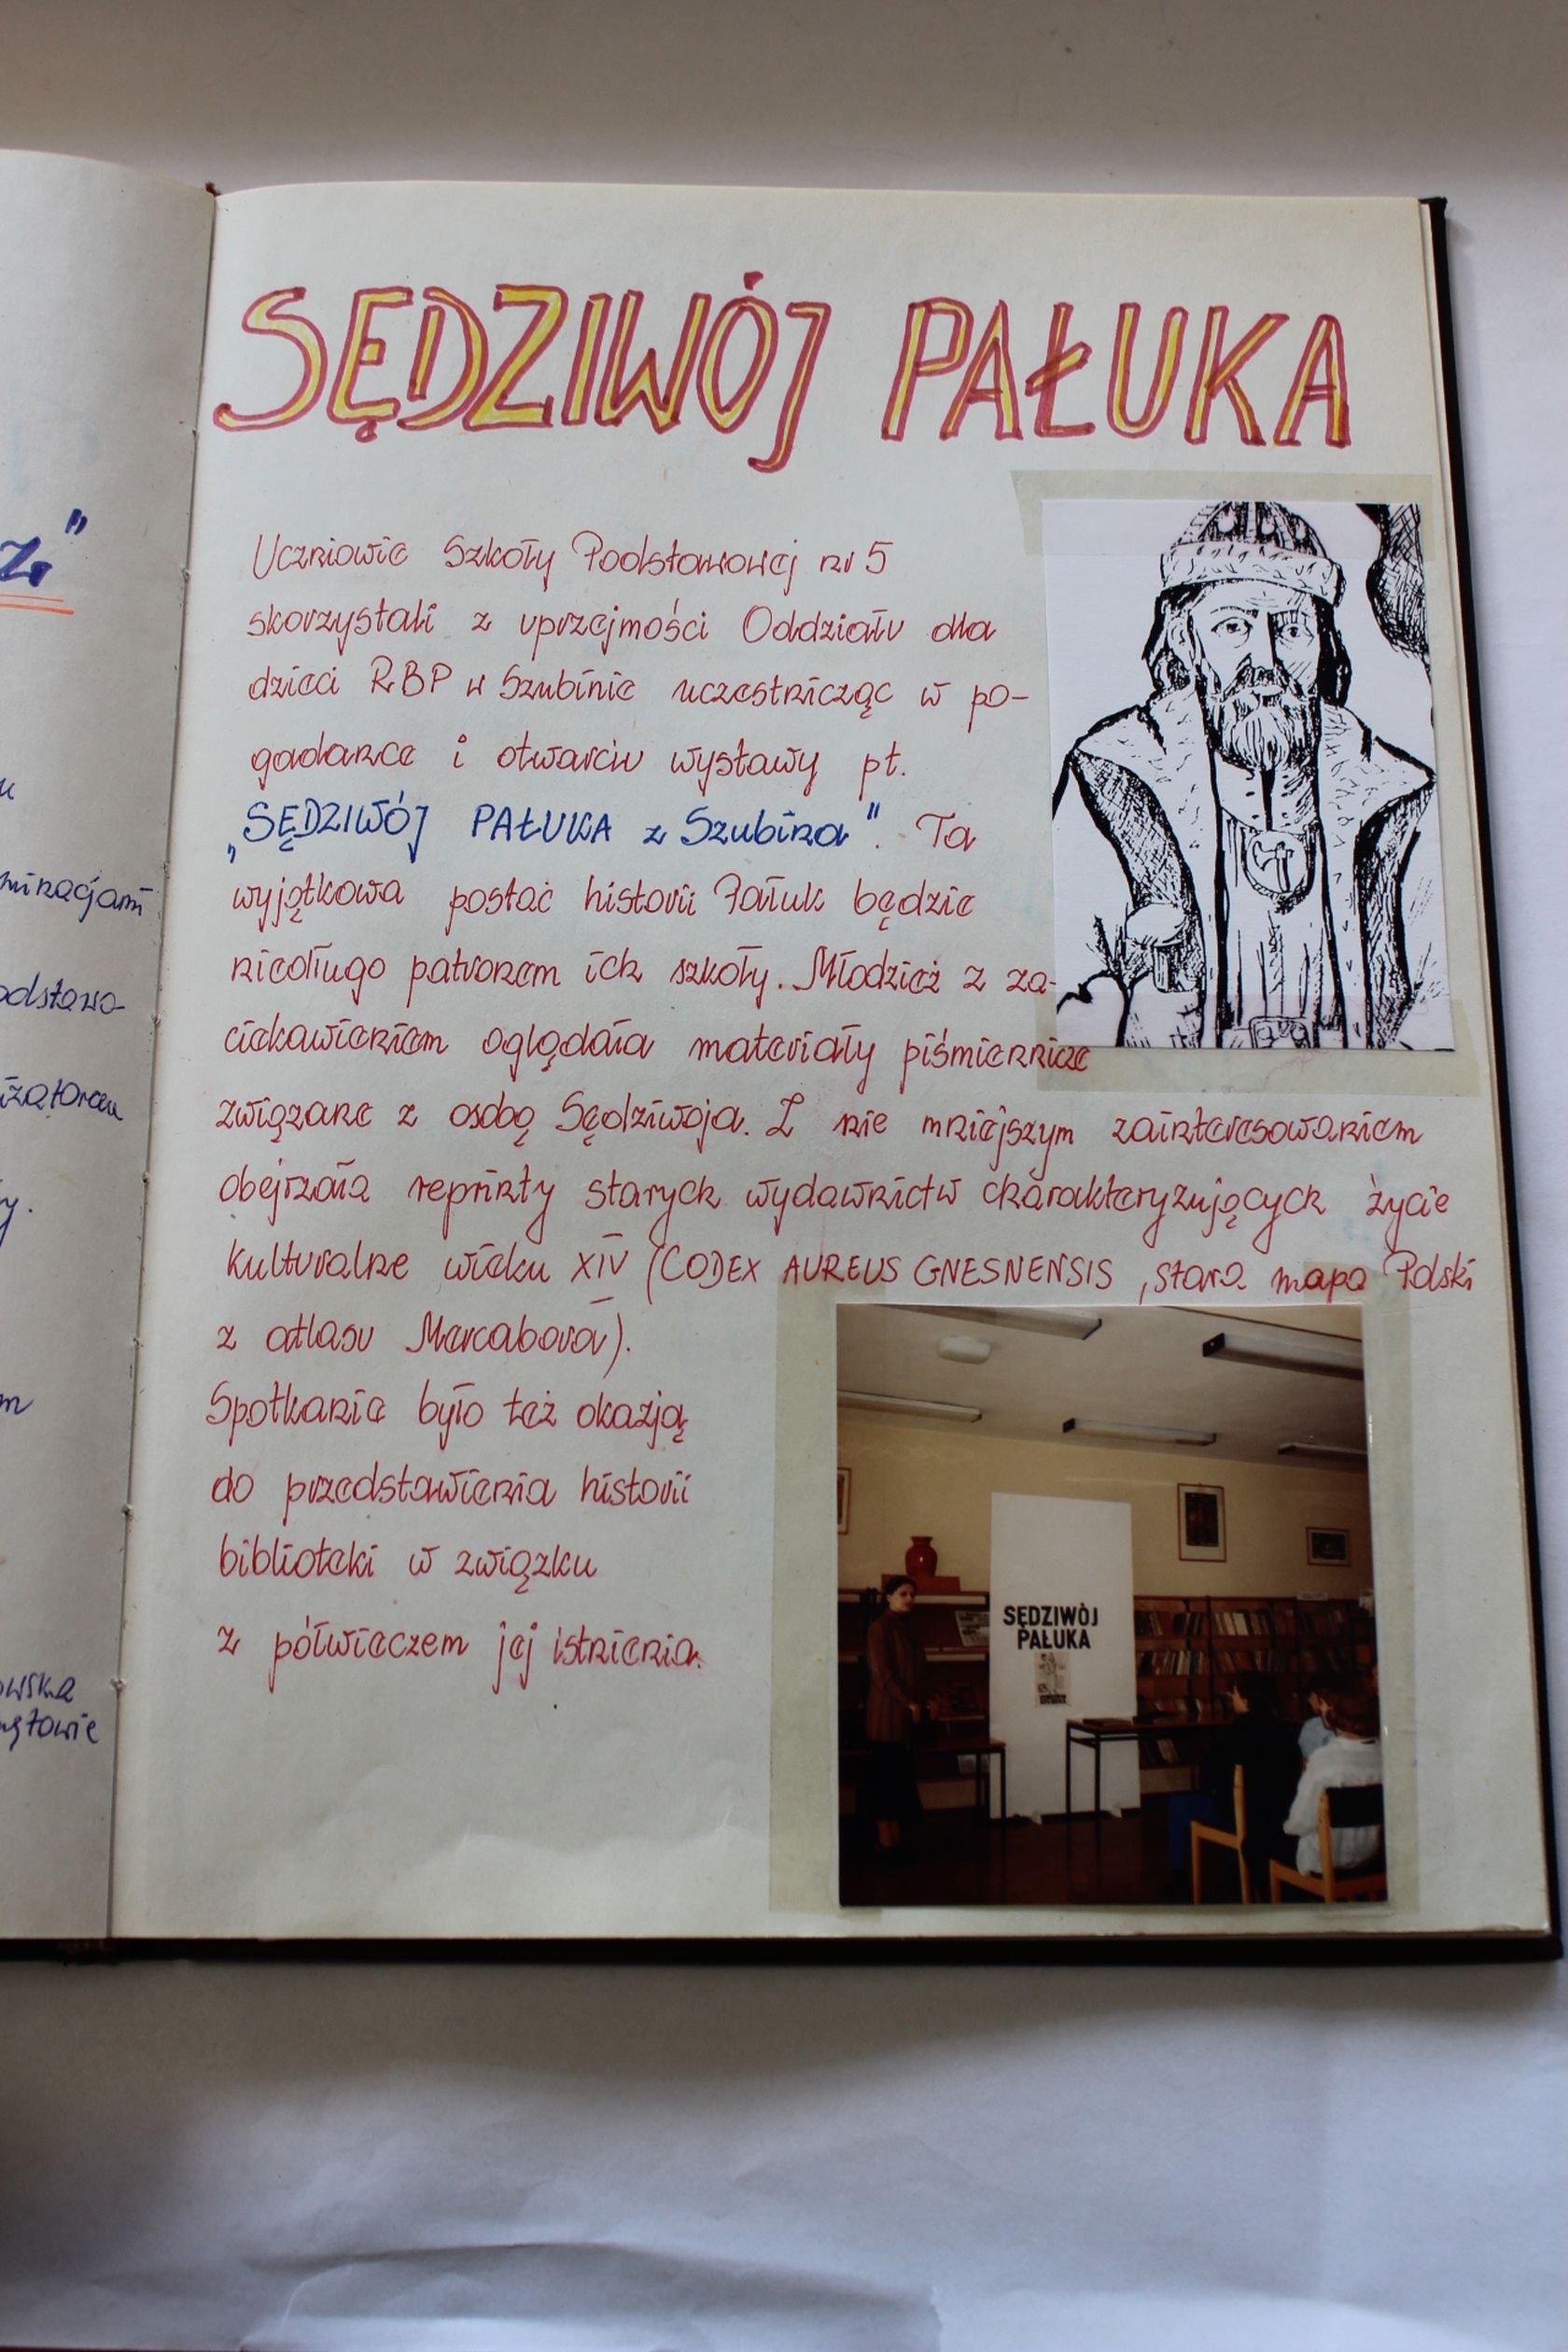 SĘDZIWÓJ PAŁUKA
Uczniowie Szkoły Podstawowej nr 5
skorzystali z uprzejmości Oddziału dla
dzieci RBP w Szubinie uczestnicząc w po-
gadance i otwarciu wystawy pt.
„SĘDZIWÓJ PAŁUKA z Szubina". Ta
wyjątkowa postać historii Pałuk będzie
niedługo patronem ich szkoły. Młodzież z za-
ciekawieniem oglądała materiały piśmiennicze
związane z osobą Sędziwoja. Z nie mniejszym zainteresowaniem
obejrzała reprinty starych wydawnictw charakteryzujących życie
kulturalne wieku XIV (CODEX AUREUS GNESNENSIS, stara mapa Polski
z atlasu Mercabora).
Spotkanie było też okazją
do przedstawienia historii
biblioteki w związku
z półwieczem jej istnienia.
SĘDZIWÓJ
PAŁUKA